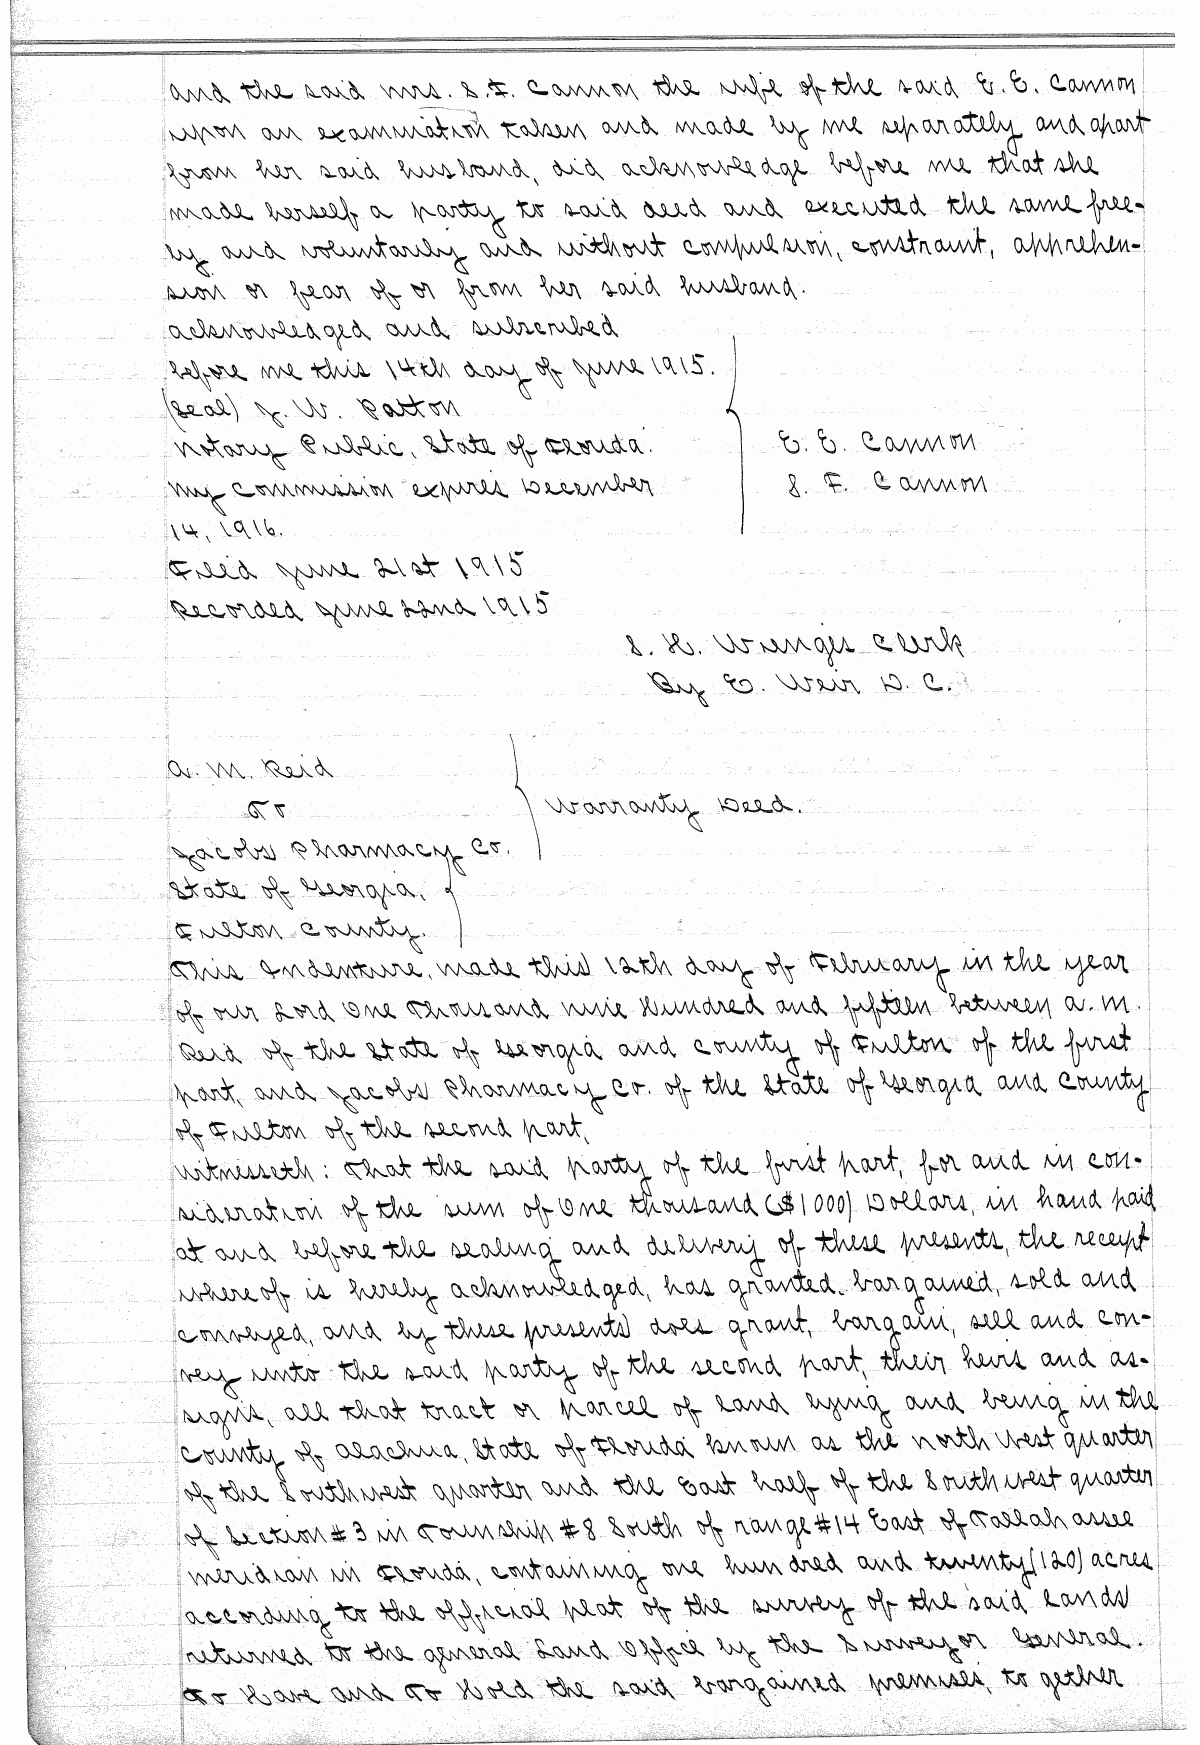 and the said Mrs. S. F. Cannon the wife of the said E. E. Cannon
upon an examination taken and made by me separately and apart
from her said husband, did acknowledge before me that she
made herself a party to said deed and executed the same free-
ly and voluntarily and without compulsion, constraint, apprehen-
sion or fear of or from her said husband.
Acknowledged and subscribed
before me this 14th day of June 1915.
(Seal) J. W. Patton
Notary Public, State of Florida.
My Commission expires December
14, 1916.
E. E. Cannon
S. F. Cannon
Filed June 21st 1915
Recorded June 22nd 1915
S. H. Wienges Clerk
By E. Weir D. C.
A. M. Reid
To
Jacobs Pharmacy Co.
Warranty Deed.
State of Georgia,
Fulton County.
This Indenture, made this 12th day of February in the year
of our Lord One Thousand nine Hundred and fifteen between A. M.
Reid of the State of Georgia and County of Fulton of the first
part, and Jacobs Pharmacy Co. of the State of Georgia and County
of Fulton of the second part,
Witnesseth: That the said party of the first part, for and in con-
sideration of the sum of One thousand ($1000) Dollars, in hand paid
at and before the sealing and delivery of these presents, the receipt
whereof is hereby acknowledged, has granted, bargained, sold and
conveyed, and by these presents does grant, bargain, sell and con-
vey unto the said party of the second part, their heirs and as-
signs, all that tract or parcel of land lying and being in the
County of Alachua, State of Florida known as the North West quarter
of the Southwest quarter and the East half of the Southwest quarter
of Section #3 in Township #8 South of range #14 East of Tallahassee
meridian in Florida, containing one hundred and twenty (120) acres
according to the official plat of the survey of the said lands
returned to the general Land Office by the Surveyor General.
To Have and To Hold the said bargained premises, to gether